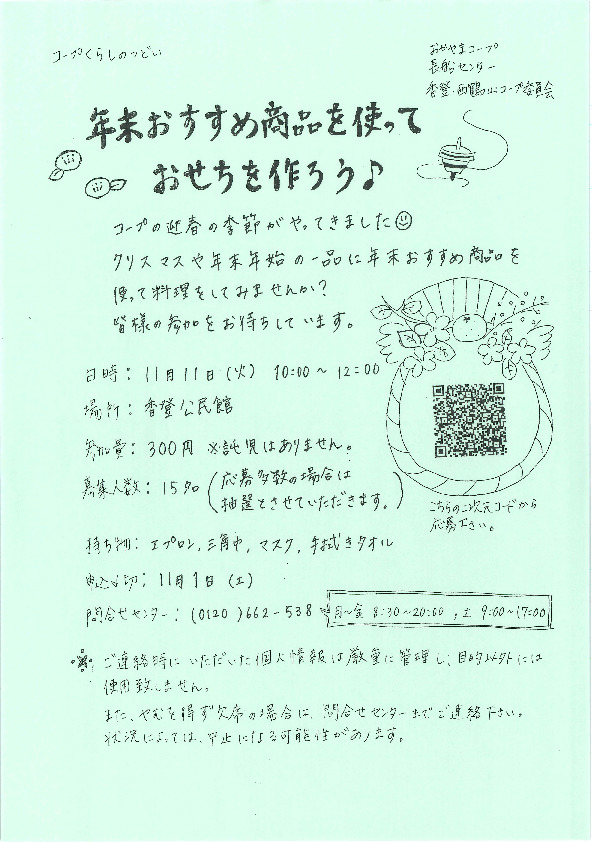 コープくらしのつどい
おかやまコープ
長船センター
香登・西鶴山コープ委員会
年末おすすめ商品を使って
おせちを作ろう♪
コープの迎春の季節がやってきました
クリスマスや年末年始の一品に年末おすすめ商品を
使って料理をしてみませんか?
皆様の参加をお待ちしています。
日時: 11月11日(火) 10:00~12:00
場所: 香登公民館
参加費: 300円 ※託児はありません。
募集人数: 15名(応募多数の場合は
抽選とさせていただきます。)
こちらの二次元コードから
応募下さい。
持ち物: エプロン, 三角巾, マスク, 手拭きタオル
申込〆切: 11月1日(土)
問合せセンター: (0120)662-538 月~金 8:30~20:00, 土 9:00~17:00
ご連絡時にいただいた個人情報は厳重に管理し、目的以外には
使用致しません。
また、やむを得ず欠席の場合は、問合せセンターまでご連絡下さい。
状況によっては、中止になる可能性があります。